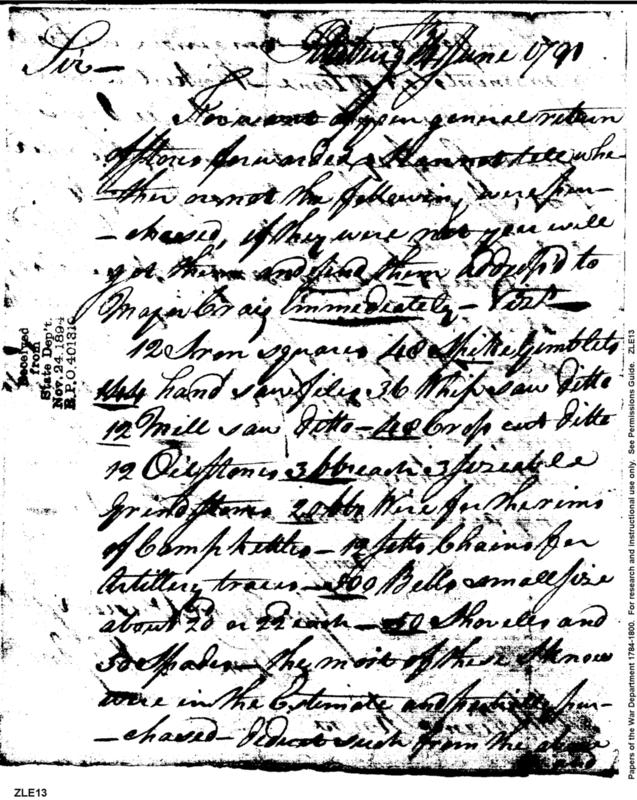 Sir — Pittsburg June 1791
For want of your general return
of stores forwarded I can not tell whe-
-ther or not the following were pur-
-chased, if they were not you will
get them and send them address'd to
Major Craig immediately — Vizt —
12 Iron squares 48 Spike Gimblets
144 hand saw files 36 Whip saw ditto
12 Mill saw ditto — 48 Cross cut ditto
12 Oilstones 3 lb each 3 sizeable
Grindstones 20 lbs Wire for the rims
of Camp kettles — 12 setts Chains for
Artillery traces — 500 Bells small size
about 20 or 22 each — 50 Shovels and
30 Spades — the most of these I know
were in the Estimate and partially pur-
-chased — deduct such from the above
and
Received
from
State Dep't.
Nov. 24. 1894
R.P.O. 401310
Papers of the War Department 1784-1800. For research and instructional use only. See Permissions Guide. ZLE13
ZLE13